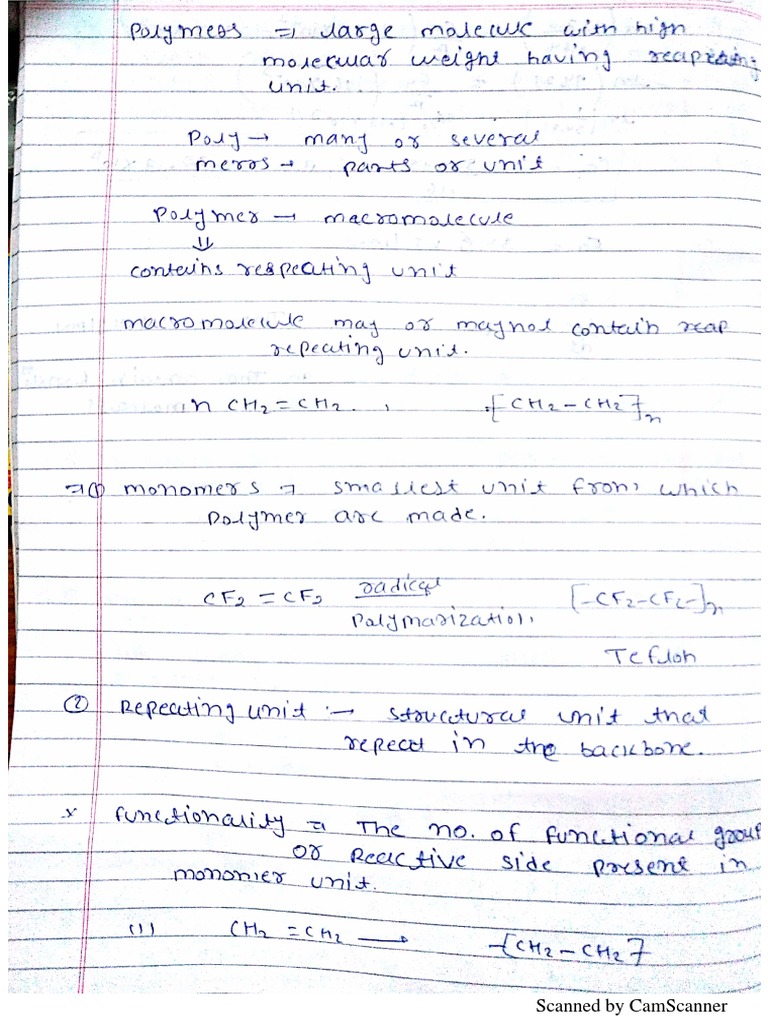 Polymers ⇒ large molecule with high
molecular weight having reapeating
unit.
Poly → many or several
meros → parts or unit
Polymer → macromolecule
⇓
contains respeating unit
macromolecule may or maynot contain reap
repeating unit.
n CH2=CH2. , .-[CH2-CH2]n
⇒① monomers ⇒ smallest unit from which
polymer are made.
CF2 = CF2 radical [-CF2-CF2-]n
Polymarization,
Teflon
② Repeating unit :→ structural unit that
repeat in the backbone.
x functionality ⇒ The no. of functional group
or Reactive side present in
monomer unit.
(1) CH2 = CH2 → -[CH2-CH2]
Scanned by CamScanner